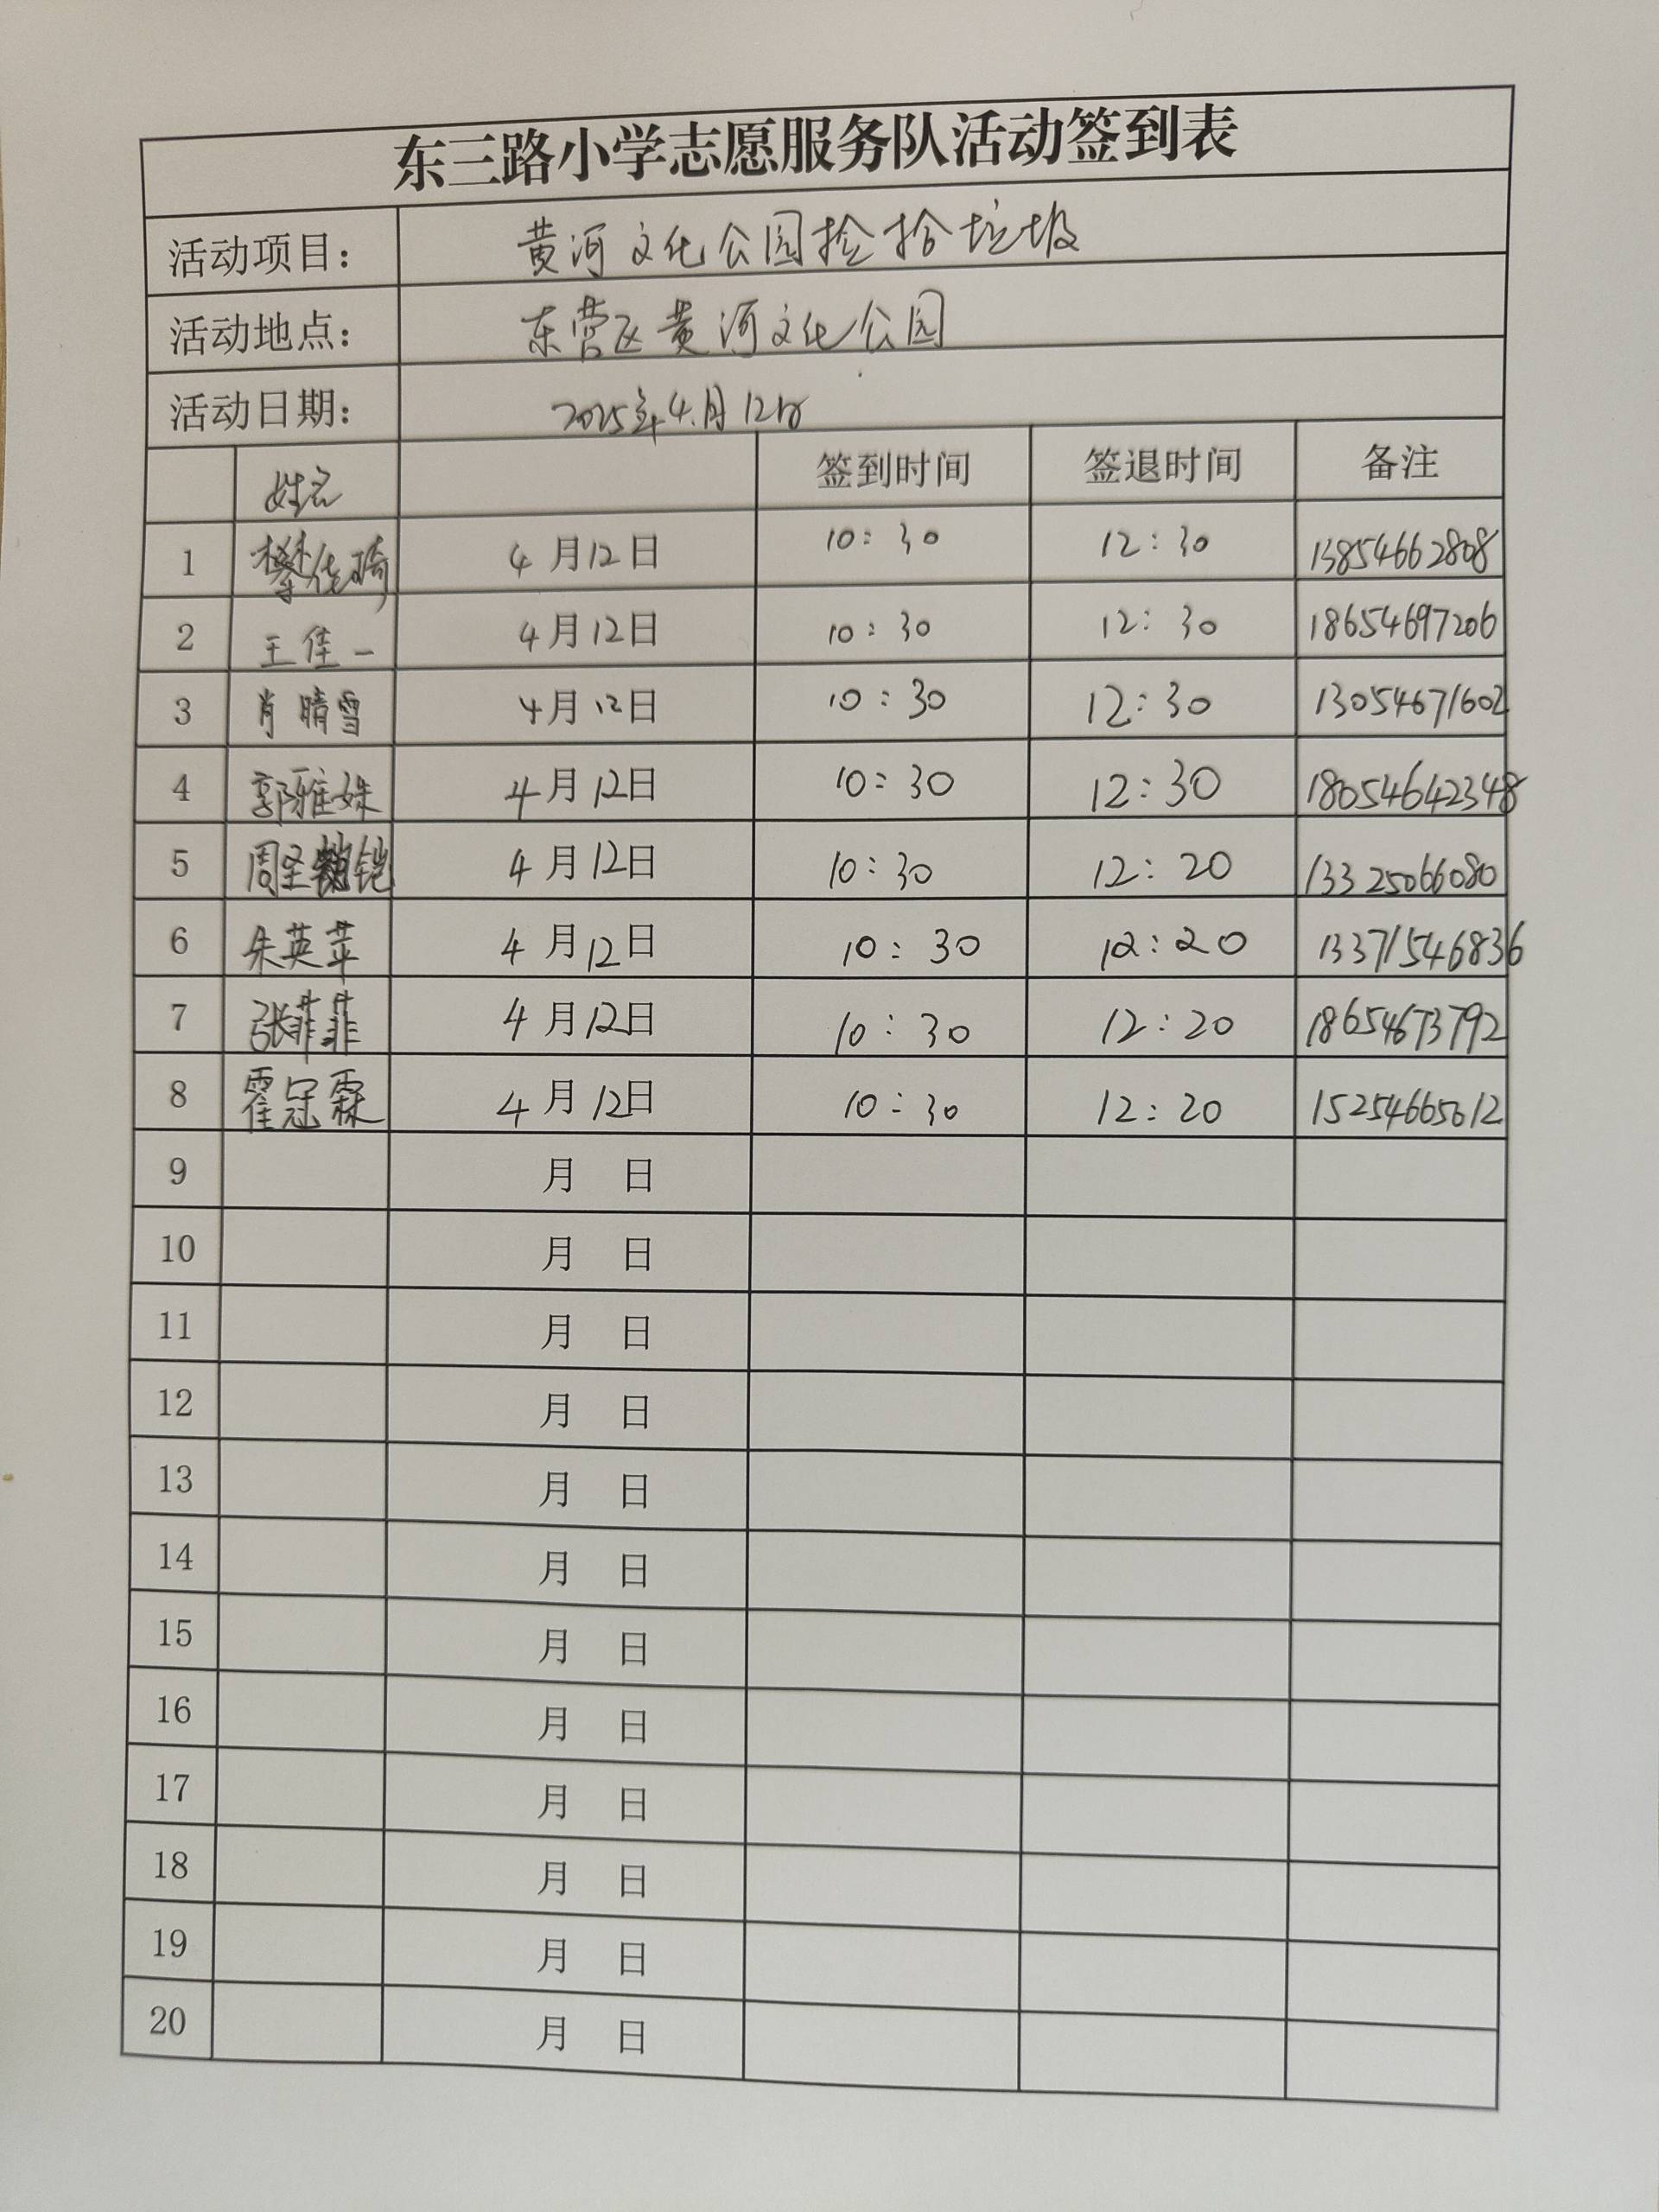 东三路小学志愿服务队活动签到表
活动项目： 黄河文化公园捡拾垃圾
活动地点： 东营区黄河文化公园
活动日期： 2025年4月12日
姓名 签到时间 签退时间 备注
1 攀佳琦 4月12日 10:30 12:30 13854662808
2 王佳一 4月12日 10:30 12:30 18654697206
3 肖晴雪 4月12日 10:30 12:30 13054671602
4 郭雅姝 4月12日 10:30 12:30 18054642348
5 周圣铠 4月12日 10:30 12:20 13325066080
6 朱英苹 4月12日 10:30 12:20 13371546836
7 张菲菲 4月12日 10:30 12:20 18654673792
8 霍冠霖 4月12日 10:30 12:20 15254665612
9 月 日
10 月 日
11 月 日
12 月 日
13 月 日
14 月 日
15 月 日
16 月 日
17 月 日
18 月 日
19 月 日
20 月 日